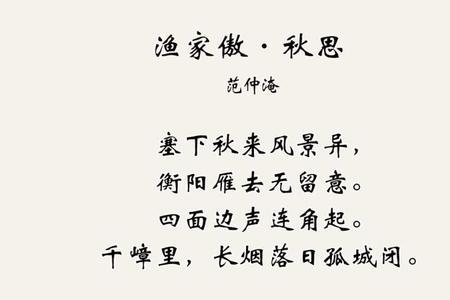 渔家傲·秋思
范仲淹
塞下秋来风景异，
衡阳雁去无留意。
四面边声连角起。
千嶂里，长烟落日孤城闭。